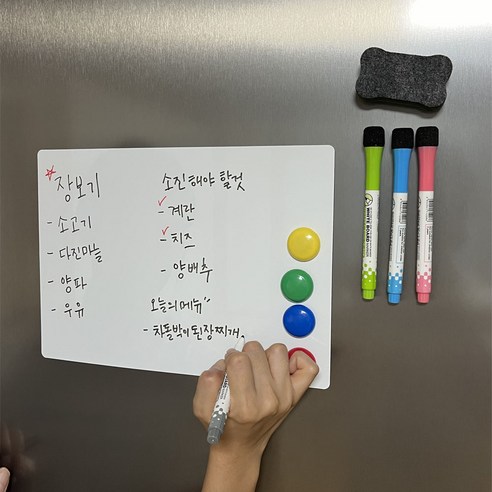 장보기
- 소고기
- 다진마늘
- 양파
- 우유
소진해야 할것
- 계란
- 치즈
- 양배추
오늘의메뉴"
- 차돌박이된장찌개.
WHITE BOARD
WHITE BOARD
WHITE BOARD